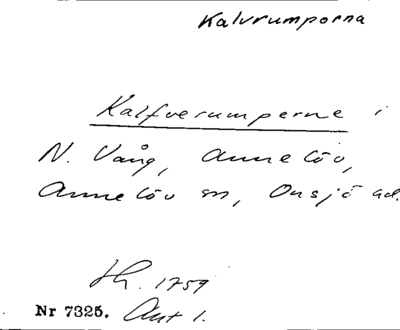 Kalvrumporna
Kalfverumperne i
N. Vång, Annelöv,
Annelöv sn, Onsjö hd.
Lh. 1759
Nr 7325. Akt 1.